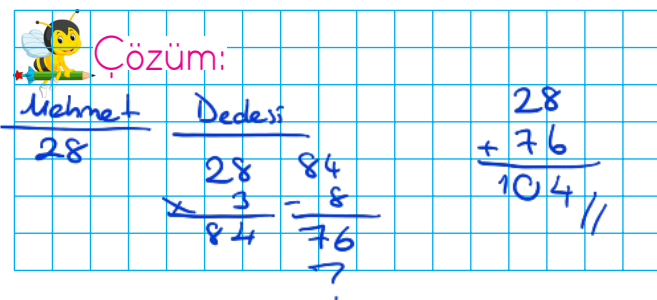 Çözüm:
Mehmet
28
Dedesi
28
x 3
84
84
- 8
76
?
28
+ 76
104 //